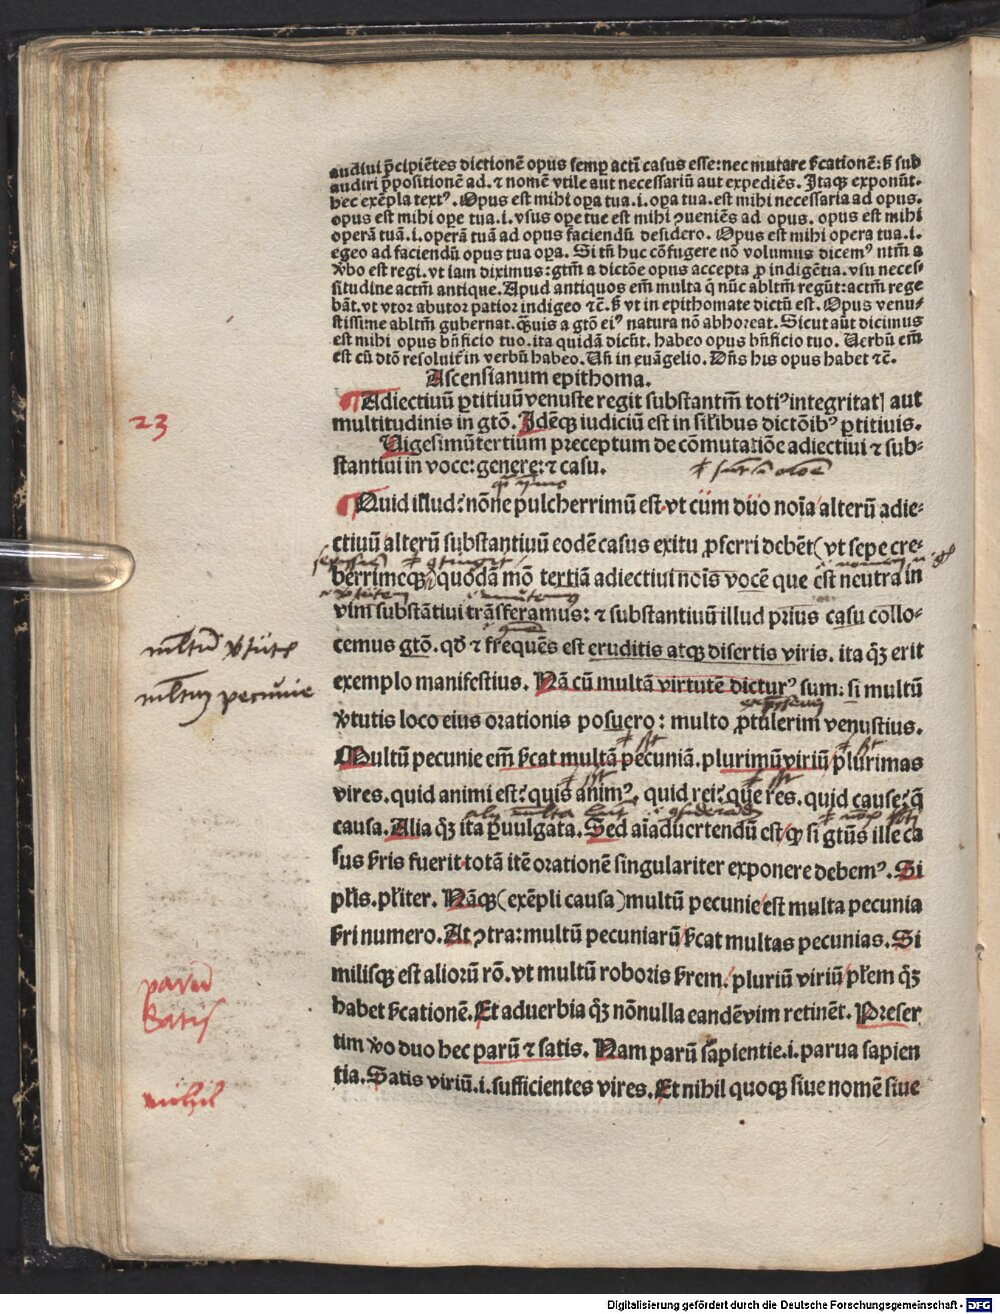 audiui p̄cipiētes dictionē opus semꝑ acti casus esse: nec mutare s̄cationē: s̄ sub
audiri p̄positionē ad. ⁊ nomē vtile aut necessariū aut expediēs. Itaqꝫ exponūt.
hec exēpla textꝰ. Opus est mihi oꝑa tua.i. oꝑa tua. est mihi necessaria ad opus.
opus est mihi oꝑe tua.i. vsus oꝑe tue est mihi ꝯueniēs ad opus. opus est mihi
operā tuā.i. operā tuā ad opus faciendū desidero. Opus est mihi opera tua.i.
egeo ad faciendū opus tua oꝑa. Si tn̄ huc cōfugere nō volumus dicemꝰ ntm̄ a
v̄bo est regi. vt iam diximus: gtm̄ a dictōe opus accepta ꝓ indigētia. vsu neces⸗
situdine actm̄ antique. Apud antiquos em̄ multa q̄ nūc abltm̄ regūt: actm̄ rege
bāt. vt vtor abutor patior indigeo ⁊c̄. s̄ vt in epithomate dictū est. Opus venu⸗
stissime abltm̄ gubernat. q̄uis a gtō eiꝰ natura nō abhoreat. Sicut aūt dicimus
est mihi opus bn̄ficio tuo. ita quidā dicūt. habeo opus bn̄ficio tuo. Uerbū em̄
est cū dtō resoluit̄ in verbū habeo. Un̄ in euāgelio. Dn̄s his opus habet ⁊c̄.
Ascensianum epithoma.
Adiectiuū ꝑtitiuū venuste regit substantm̄ totiꝰ integritat] aut
multitudinis in gtō. Idēqꝫ iudiciū est in sil̄ibus dictōibꝰ ꝑtitiuis.
23
Uigesimū tertium preceptum de cōmutatiōe adiectiui ⁊ sub⸗
stantiui in voce: genere: ⁊ casu.
Quid illud? nōne pulcherrimū est vt cūm dūo noīa alterū adie⸗
ctiuū alterū substantiuū eodē casus exitu ꝓferri debēt (vt sepe cre⸗
berrimeqꝫ) quodā mō tertiā adiectiui nois vocē que est neutra in
vim substātiui trāsferamus: ⁊ substantiuū illud prius casu collo⸗
cemus gtō. qd̄ ⁊ freque̅s est eruditis atqꝫ disertis viris. ita qꝫ erit
multū v̄tutꝭ
exemplo manifestius. Nā cū multā virtutē dicturꝰ sum: si multū
multum pecunie
v̄tutis loco eius orationis posuero: multo ꝓtulerim venustius.
Multū pecunie em̄ s̄cat multā pecuniā. plurimū viriū plurimas
vires. quid animi est? quis animꝰ. quid rei? que res. quid cause? q̄
causa. Alia qꝫ ita ꝑuulgata. Sed aīaduertendū est ꝙ si gtūs ille ca
sus s̄ris fuerit totā itē orationē singulariter exponere debemꝰ. Si
pl̄is. pl̄iter. Nāqꝫ (exēpli causa) multū pecunie est multa pecunia
s̄ri numero. At ꝯtra: multū pecuniarū s̄cat multas pecunias. Si
milisqꝫ est aliorū rō. vt multū roboris s̄rem. pluriū viriū pl̄em qꝫ
parū
habet s̄cationē. Et aduerbia qꝫ nōnulla eandē vim retinēt. Preser
satis
tim v̄o duo hec parū ⁊ satis. Nam parū sapientie.i. parua sapien
tia. Satis viriū.i. sufficientes vires. Et nihil quoqꝫ siue nomē siue
nihil
Digitalisierung gefördert durch die Deutsche Forschungsgemeinschaft - DFG